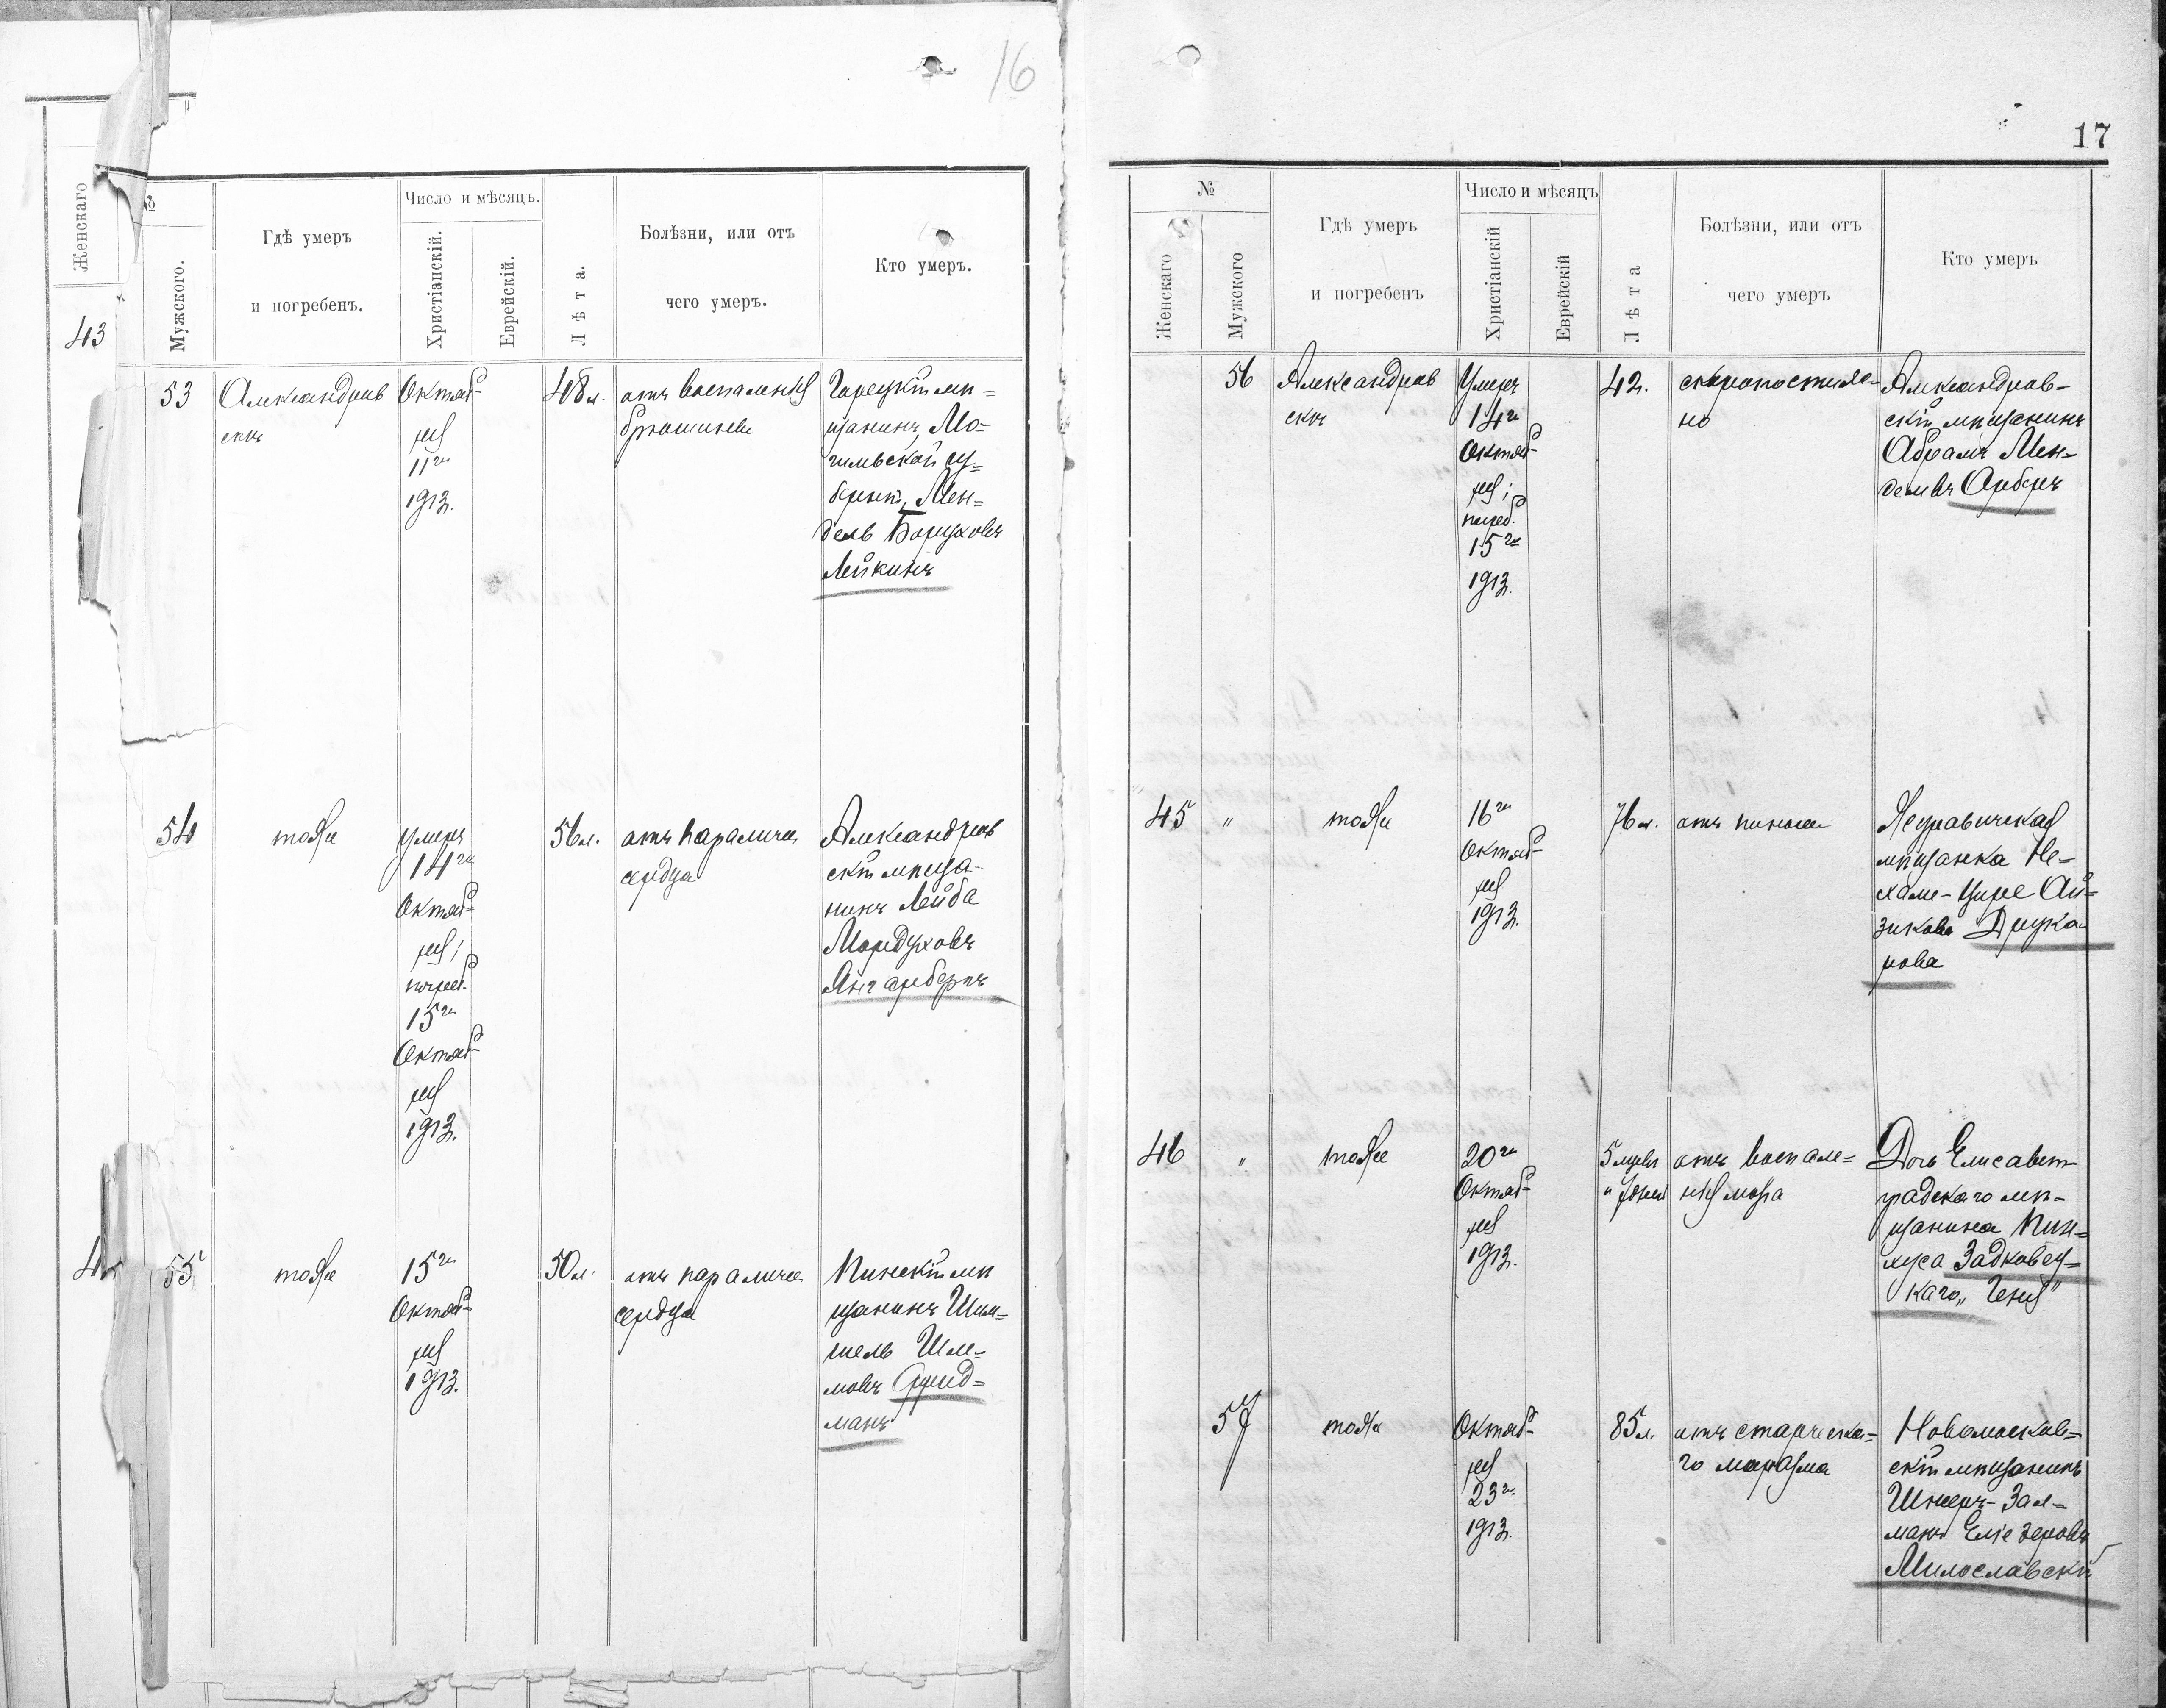 16
Женскаго
43
№
Мужского.
Гдѣ умеръ
и погребенъ.
Число и мѣсяцъ.
Христіанскій.
Еврейскій.
Лѣта.
Болѣзни, или отъ
чего умеръ.
Кто умеръ.
53
Александров
скъ
Октяб-
ря
11го
1913.
48 л.
отъ воспаленія
брюшины
Горецкій мѣ-
щанинъ, Мо-
гилевской гу-
берніи, Мен-
дель Боруховъ
Лейкинъ
54
тоже
Умеръ
14го
Октяб-
ря;
погреб.
15го
Октяб-
ря
1913.
56 л.
отъ паралича
сердца
Александров
скій мѣща-
нинъ Лейба
Мордуховъ
Янгарберъ
55
тоже
15го
Октяб-
ря
1913.
50 л.
отъ паралича
сердца
Пинскій мѣ
щанинъ
Шле-
мовъ
манъ
17
№
Женскаго
Мужского
Гдѣ умеръ
и погребенъ
Число и мѣсяцъ
Христіанскій
Еврейскій
Лѣта
Болѣзни, или отъ
чего умеръ
Кто умеръ
56
Александров
скъ
Умеръ
14го
Октяб-
ря;
погреб.
15го
1913.
42.
скоропостиж-
но
Александров-
скій мѣщанинъ
Абрамъ Мен-
делевъ Арберъ
45
"
тоже
16го
Октяб-
ря
1913.
76 л.
отъ
мѣщанка Не-
хаме-Цире Ай-
зикова Друка-
рова
46
"
тоже
20го
Октяб-
ря
1913.
5 мѣсяц
и дней
отъ воспале-
нія мозга
Дочь Елисавет-
градскаго мѣ-
щанина Пин-
хуса Задковец-
каго „Геня"
57
тоже
Октяб-
ря
23го
1913.
85 л.
отъ старческа-
го маразма
Новомосков-
скій мѣщанинъ
Шнееръ-Зал-
манъ Еліезеровъ
Милославскій